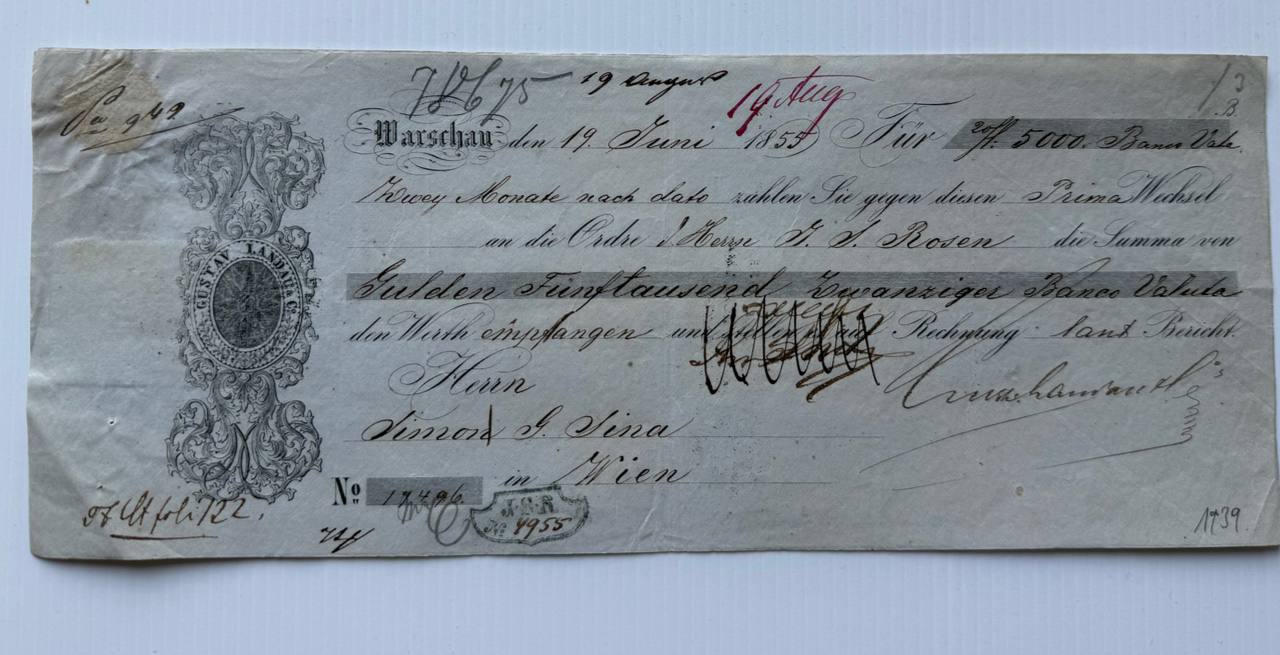 19 August
19 Aug
Warschau den 19. Juni 1855 Für 5000. Banco Vata
Zwey Monate nach dato zahlen Sie gegen diesen Prima Wechsel
an die Ordre d. Herrn J. S. Rosen die Summa von
Gulden Fünftausend Zwanziger Banco Valuta
den Werth empfangen und Rechnung laut Bericht.
Herrn
Simon G. Sina
in Wien
GUSTAV LANDAU & Co.
No 17496.
J.S.R
No 4955
1739.